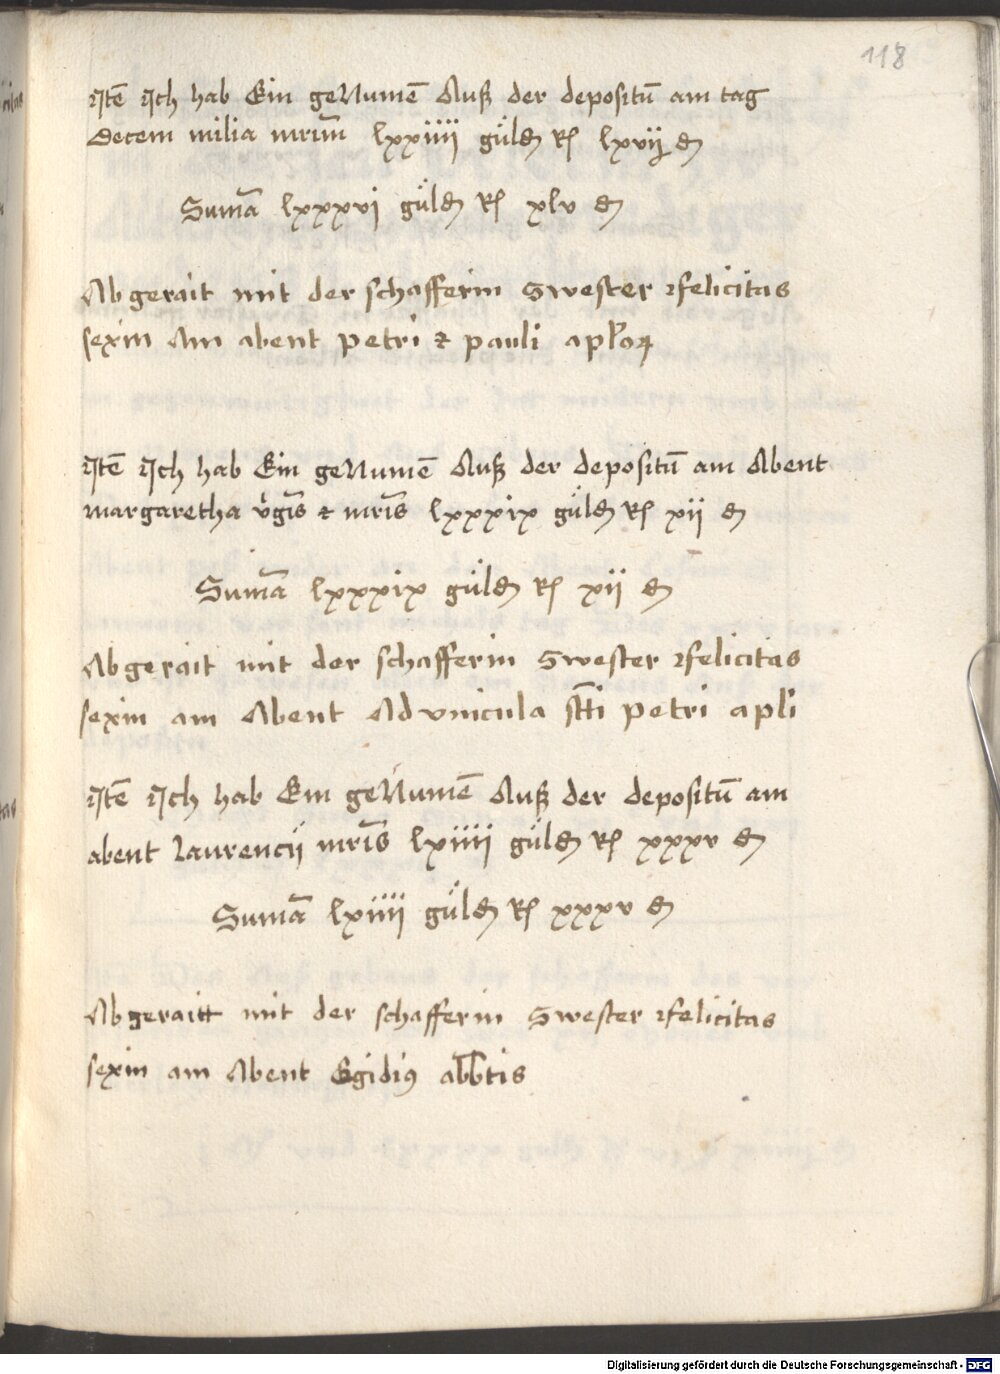 118
Jtē Jch hab Ein geNumē Auß der depositū am tag
decem milia mrim̄ lxxiiii gúldn̄ Rſ lxvij dn̄
Sumā lxxxvj gúldn̄ Rſ xlv dn̄
Abgerait mit der schafferin Swester felicitas
sexin Am abent petri et pauli apl'oꝝ
Jtē Jch hab Ein geNumē Auß der depositū am Abent
margaretha v'gīs et mrīs lxxxix gúldn̄ Rſ xii dn̄
Sumā lxxxix gúldn̄ Rſ xii dn̄
Abgerait mit der schafferin Swester felicitas
sexin am Abent Ad vnicula sc̄ti petri apli
Jtē Jch hab Ein geNumē Auß der depositū am
abent Laurencij mrīs lxiiii gúldn̄ Rſ xxxv dn̄
Sumā lxiiii gúldn̄ Rſ xxxv dn̄
Abgeraitt mit der schafferin Swester felicitas
sexin am Abent Egidiꝯ abb̄tis
Digitalisierung gefördert durch die Deutsche Forschungsgemeinschaft - DFG